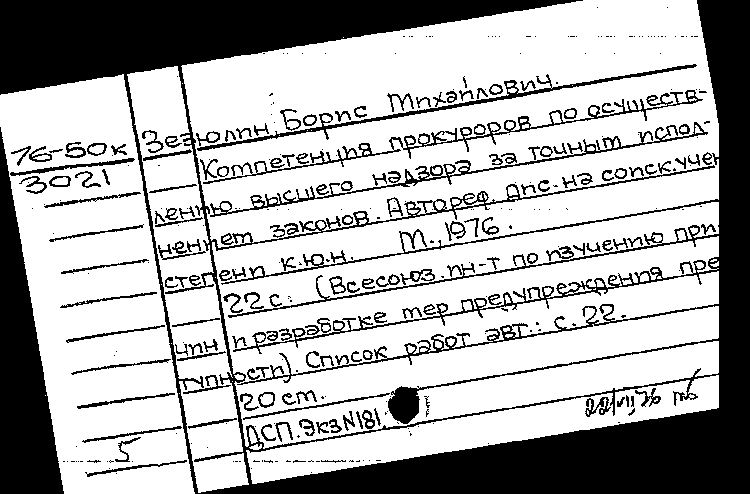 76-50к
3021
Зезюлин, Борис Михайлович.
Компетенция прокуроров по осуществ-
лению высшего надзора за точным испол-
нением законов. Автореф. дис. на соиск. учен
степени к.ю.н. М., 1976.
22 с. (Всесоюз. ин-т по изучению при-
чин и разработке мер предупреждения пре
тупности). Список работ авт.: с. 22.
20 см.
ДСП. Экз №181
5